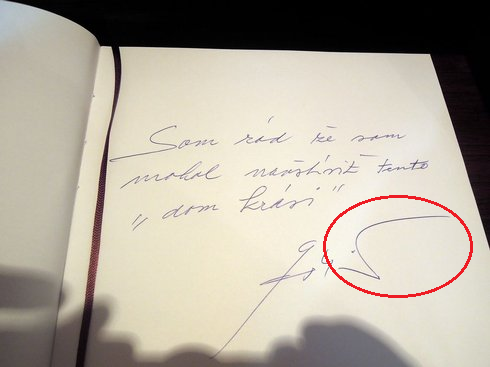 Som rád že som
mohol navštíviť tento
„dom krási"